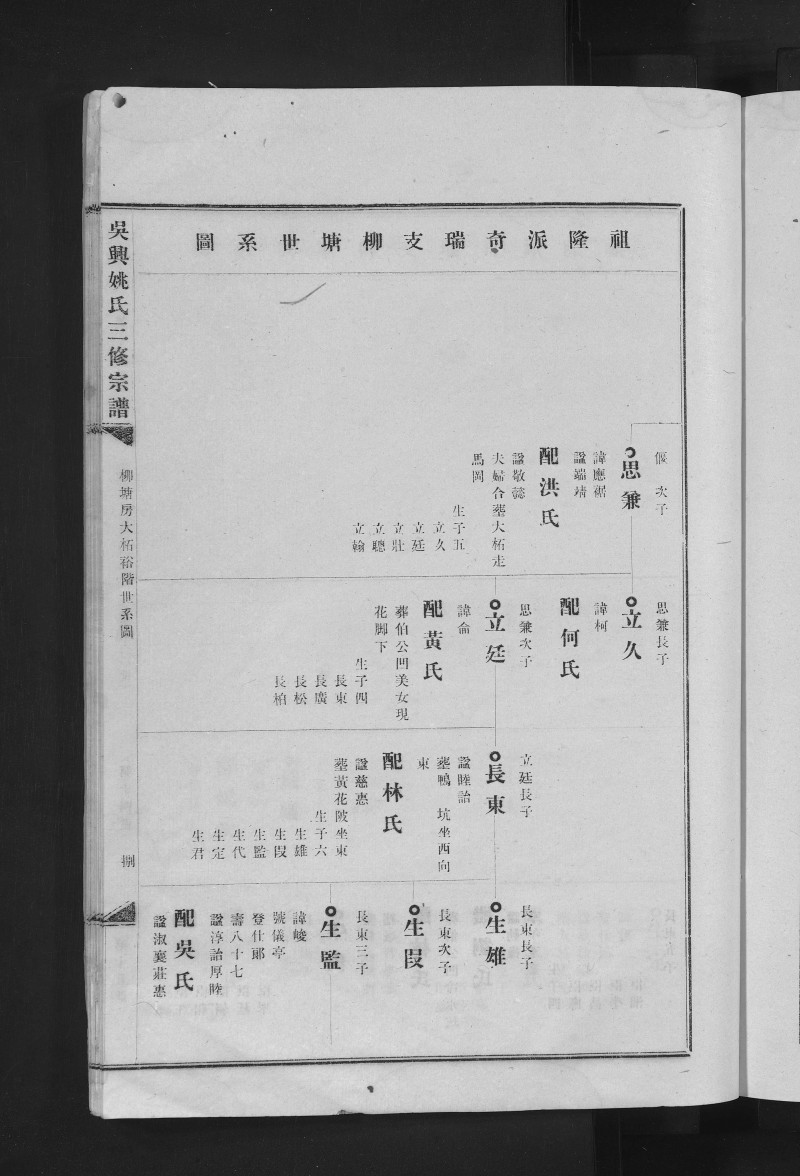 祖隆派奇瑞支柳塘世系圖
偃次子
思兼
諱應裾
諡端靖
配洪氏
諡敬懿
夫婦合塟大柘走
馬岡
生子五
立久
立廷
立壯
立聰
立翰
思兼長子
立久
諱柯
配何氏
思兼次子
立廷
諱侖
配黃氏
葬伯公凹美女現
花脚下
生子四
長東
長廣
長松
長柏
立廷長子
長東
諡睦詒
塟鴨坑坐西向
東
配林氏
諡慈惠
塟黃花陂坐東
生子六
生雄
生叚
生監
生代
生定
生君
長東長子
生雄
長東次子
生叚
長東三子
生監
諱峻
號儀亭
登仕郎
壽八十七
諡淳詒厚睦
配吳氏
諡淑襄莊惠
吳興姚氏三修宗譜
柳塘房大柘裕階世系圖
捌